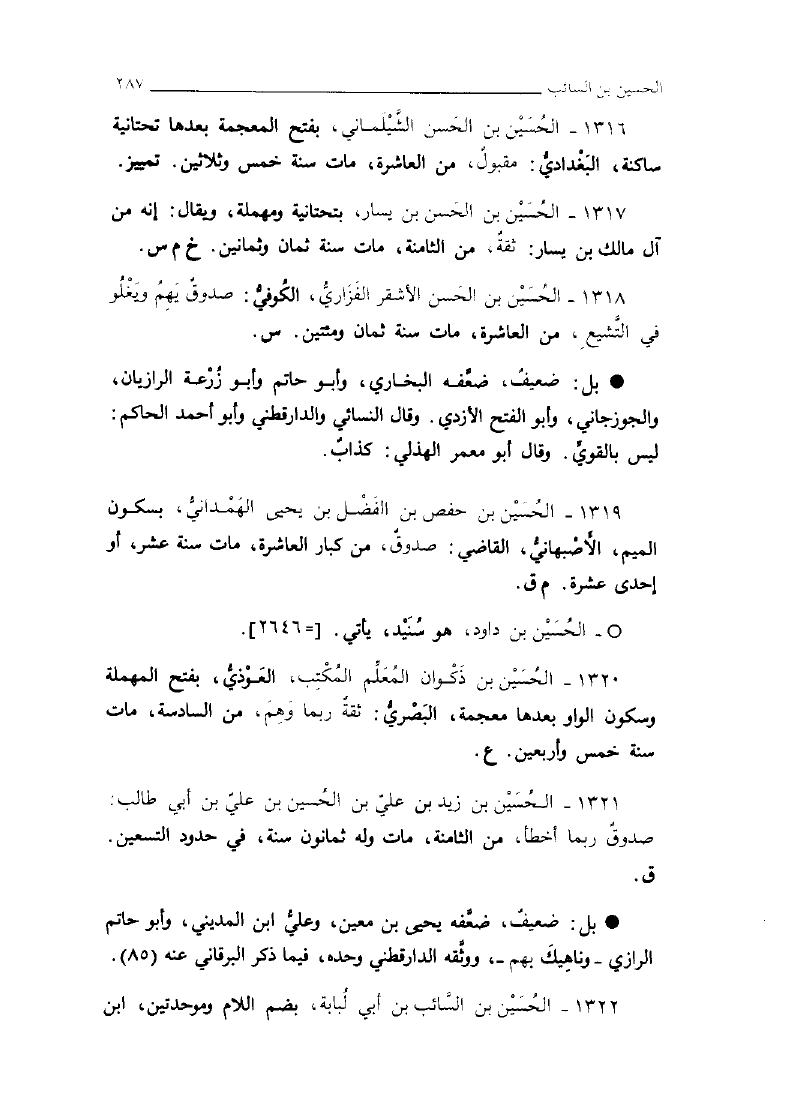 الحسين بن السائب ٢٨٧
١٣١٦ ـ الحُسَيْن بن الحَسن الشَّيْلَماني، بفتح المعجمة بعدها تحتانية
ساكنة، البَغْداديُّ: مقبولٌ، من العاشرة، مات سنة خمس وثلاثين. تمييز.
١٣١٧ ـ الحُسَيْن بن الحَسن بن يسار، بتحتانية ومهملة، ويقال: إنه من
آل مالك بن يسار: ثقةٌ، من الثامنة، مات سنة ثمان وثمانين. خ م س.
١٣١٨ ـ الحُسَيْن بن الحَسن الأشقر الفَزَاريُّ، الكُوفيُّ: صدوقٌ يَهِمُ ويَغْلُو
في التَّشيعِ، من العاشرة، مات سنة ثمان ومئتين. س.
● بل: ضعيفٌ، ضعَّفه البخاري، وأبو حاتم وأبو زُرْعة الرازيان،
والجوزجاني، وأبو الفتح الأزدي. وقال النسائي والدارقطني وأبو أحمد الحاكم:
ليس بالقويِّ. وقال أبو معمر الهذلي: كذابٌ.
١٣١٩ ـ الحُسَيْن بن حفص بن الفَضْل بن يحيى الهَمْدانيُّ، بسكون
الميم، الأَصْبهانيُّ، القاضي: صدوقٌ، من كبار العاشرة، مات سنة عشر، أو
إحدى عشرة. م ق.
○ ـ الحُسَيْن بن داود، هو سُنَيْد، يأتي. [=٢٦٤٦].
١٣٢٠ ـ الحُسَيْن بن ذَكْوان المُعَلِّم المُكْتِب، العَوْذيُّ، بفتح المهملة
وسكون الواو بعدها معجمة، البَصْريُّ: ثقةٌ ربما وَهِمَ، من السادسة، مات
سنة خمس وأربعين. ع.
١٣٢١ ـ الحُسَيْن بن زيد بن عليّ بن الحُسين بن عليّ بن أبي طالب:
صدوقٌ ربما أخطأ، من الثامنة، مات وله ثمانون سنة، في حدود التسعين.
ق.
● بل: ضعيفٌ، ضعَّفه يحيى بن معين، وعليُّ ابن المديني، وأبو حاتم
الرازي ـ وناهِيكَ بهم ـ، ووثَّقه الدارقطني وحده، فيما ذكر البرقاني عنه (٨٥).
١٣٢٢ ـ الحُسَيْن بن السَّائب بن أبي لُبابة، بضم اللام وموحدتين، ابن